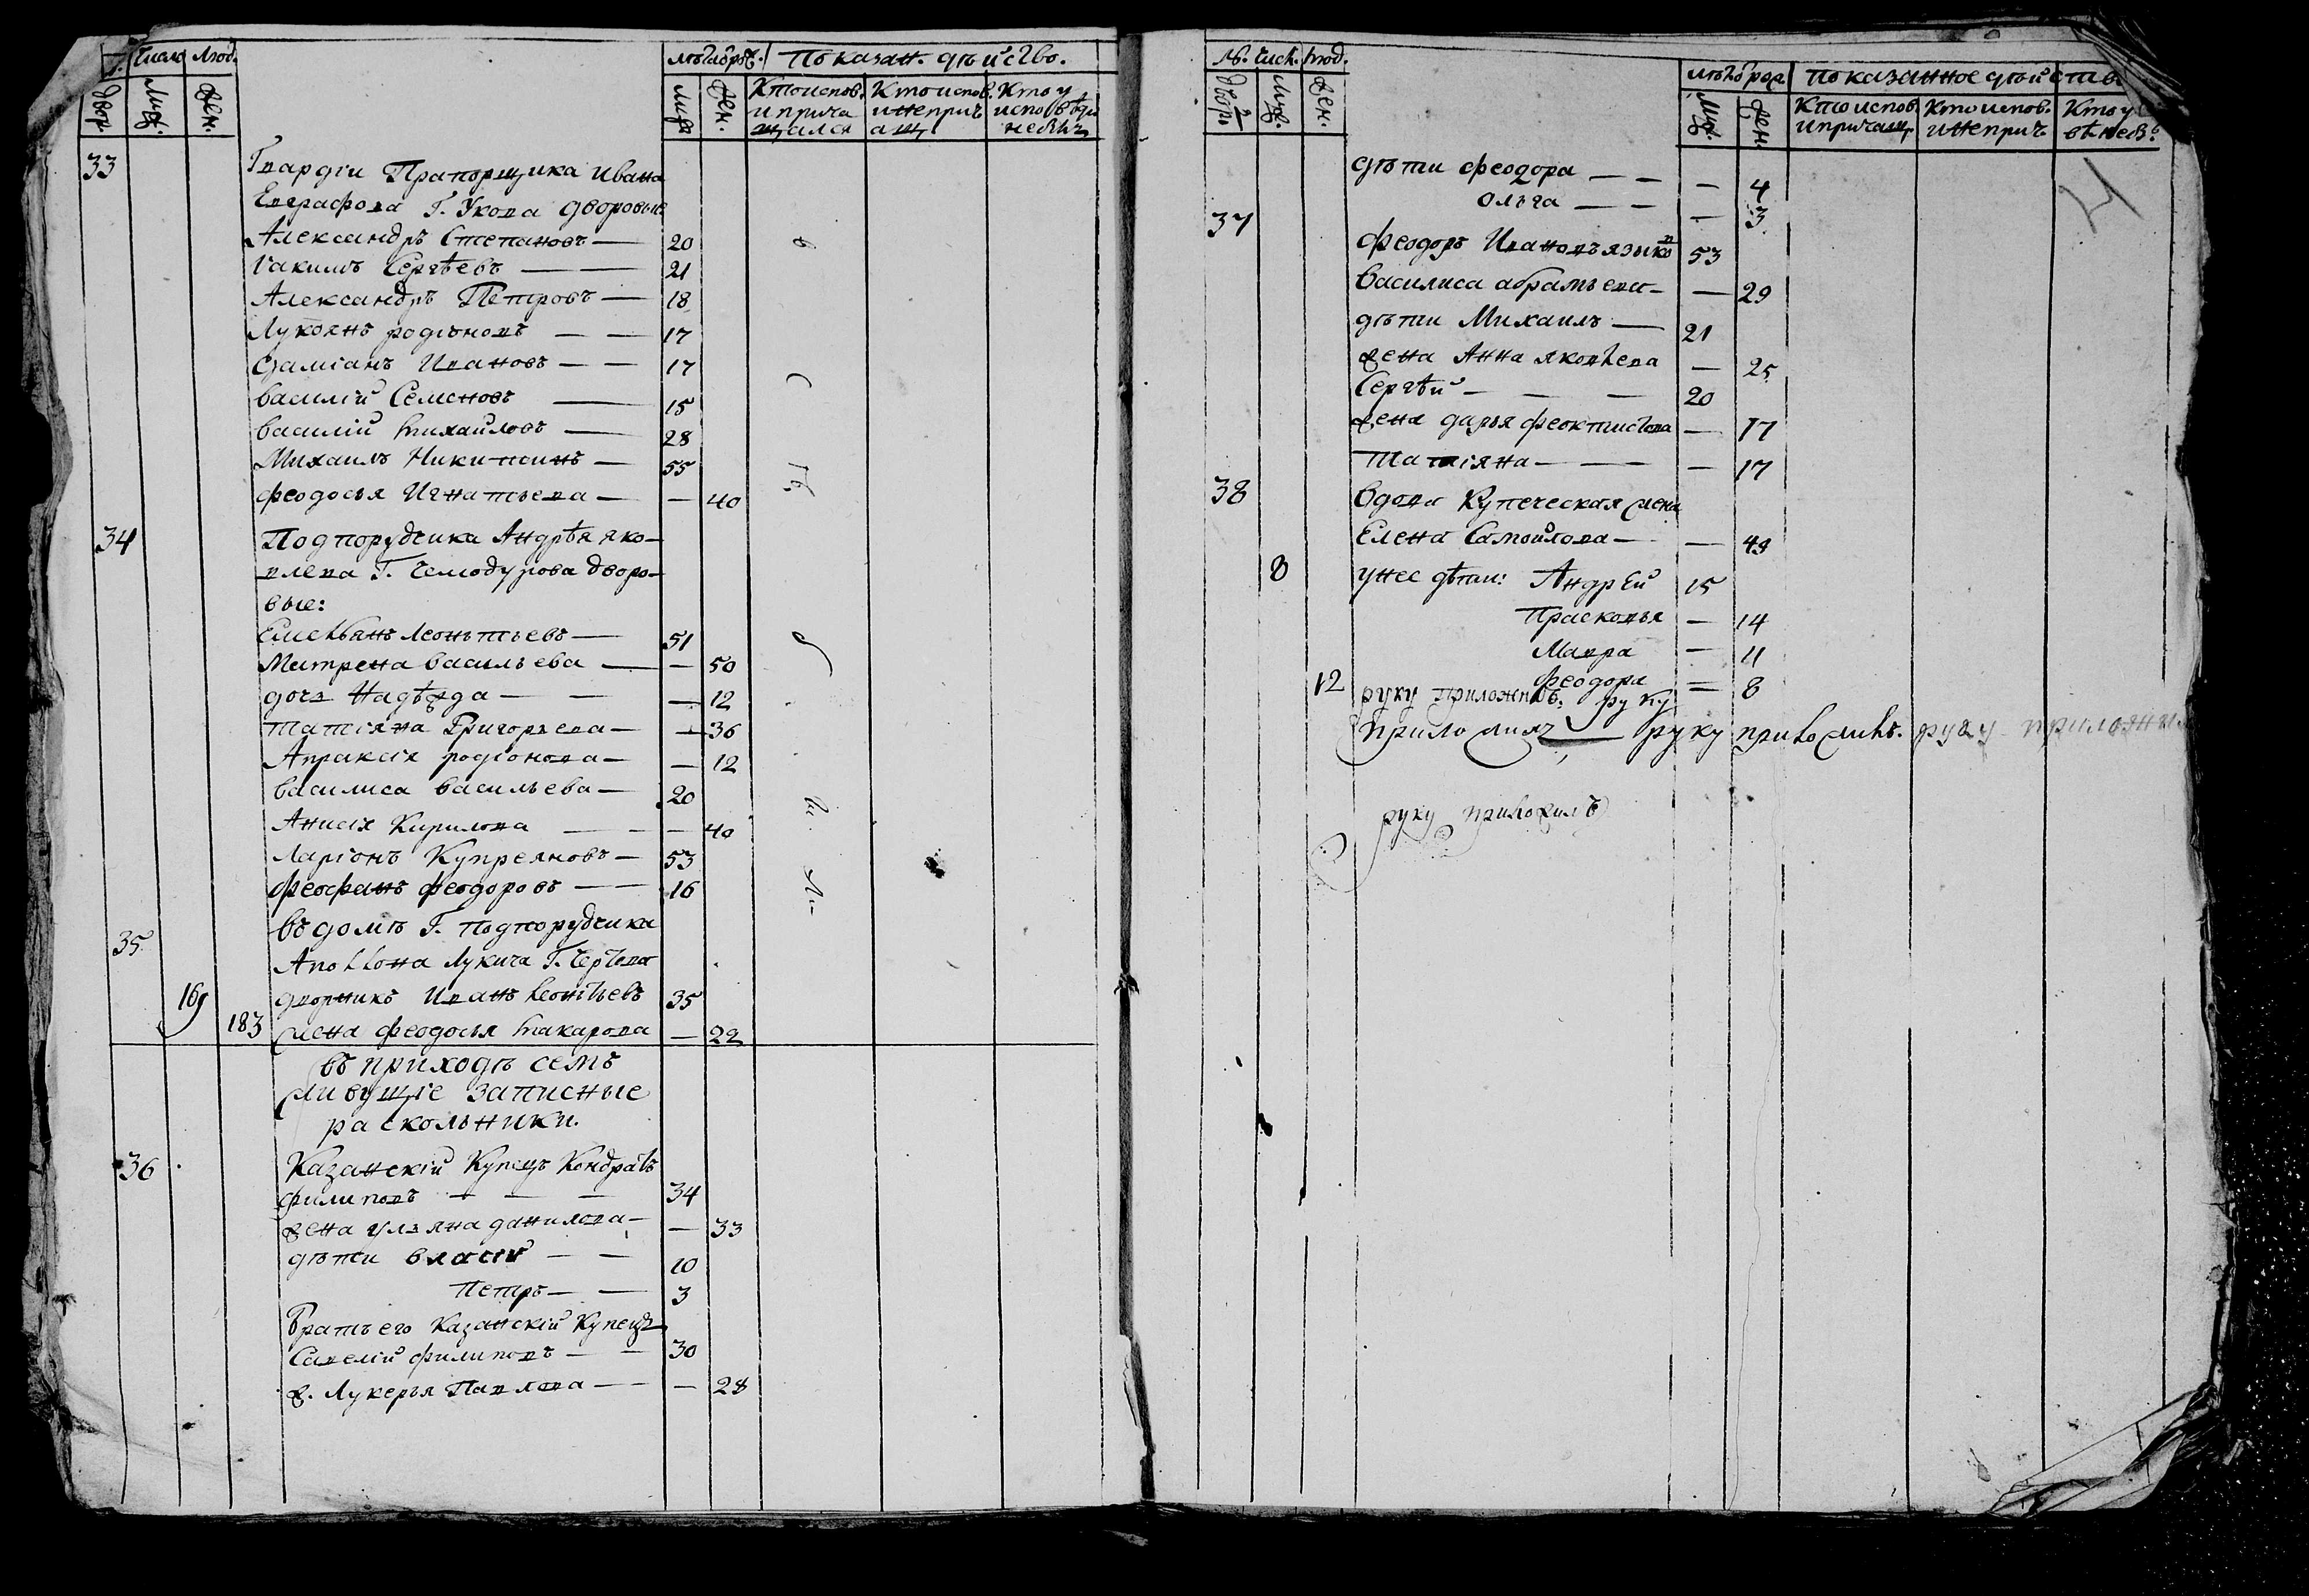 Число люд.
лѣта отъ рож. Показан. дѣйство.
двор.
Муж.
жен.
муж
жен.
Кто испов. и прича щался
Кто испов. и неприч ащ
Кто у исповѣди небылъ
33 Гвардіи Прапорщика Ивана
Евграфова Г. Укова дворовые
Александръ Степановъ — 20
Іакимъ Сергѣевъ — 21
Александръ Петровъ — 18
Лукоянъ родіоновъ — 17
Даміанъ Ивановъ — 17
Василій Семеновъ — 15
Василій михайловъ — 28
Михаилъ Никитинъ — 55
феодосья Игнатьева — — 40
34 Подпорутчика Андрѣя Яко-
влева Г. Чемодурова дворо-
вые:
Емельянъ Леонътьевъ — 51
Матрена васильева — — 50
дочь Надѣжда — — 12
татіяна Григорьева — — 36
Апраксія родіонова — — 12
василиса васильева — 20
Анисія Кирилова — — 40
Ларіонъ Купреяновъ — 53
феофанъ феодоровъ — 16
35 въ домѣ Г. Подпорутчика
Аполлона Лукича Г. Чертова
дворникъ Иванъ Леонтьевъ 35
169 183 жена феодосья макарова — 22
въ приходѣ семъ
живущіе записные
раскольники.
36 Казанскій Купецъ Кондратъ
филиповъ — 34
жена ульяна данилова — — 33
дѣти власій — 10
Петръ — 3
братъ его Казанскій Купецъ
Савелій филиповъ — 30
ж. Лукерья Павлова — — 28
№. числ. люд.
лѣтъ рож. показанное дѣйств
двор.
муж.
жен.
муж.
жен.
Кто испов и причащ.
Кто испов. и неприч
Кто у
дѣти феодора — — 4
ольга — — 3
37 феодоръ Ивановъ языковъ 53
василиса абрамьева — — 29
дѣти Михаилъ — 21
жена Анна яковлева — 25
Сергѣй — 20
жена дарья феоктистова — 17
татіяна — — 17
38 вдова Купеческая жена
Елена Самойлова — — 49
8 у нее дѣти: Андрей 15
Прасковья — 14
Мавра — 11
12 феодора — 8
руку приложилъ. руку
приложилъ руку приложилъ. руку приложилъ
руку приложилъ